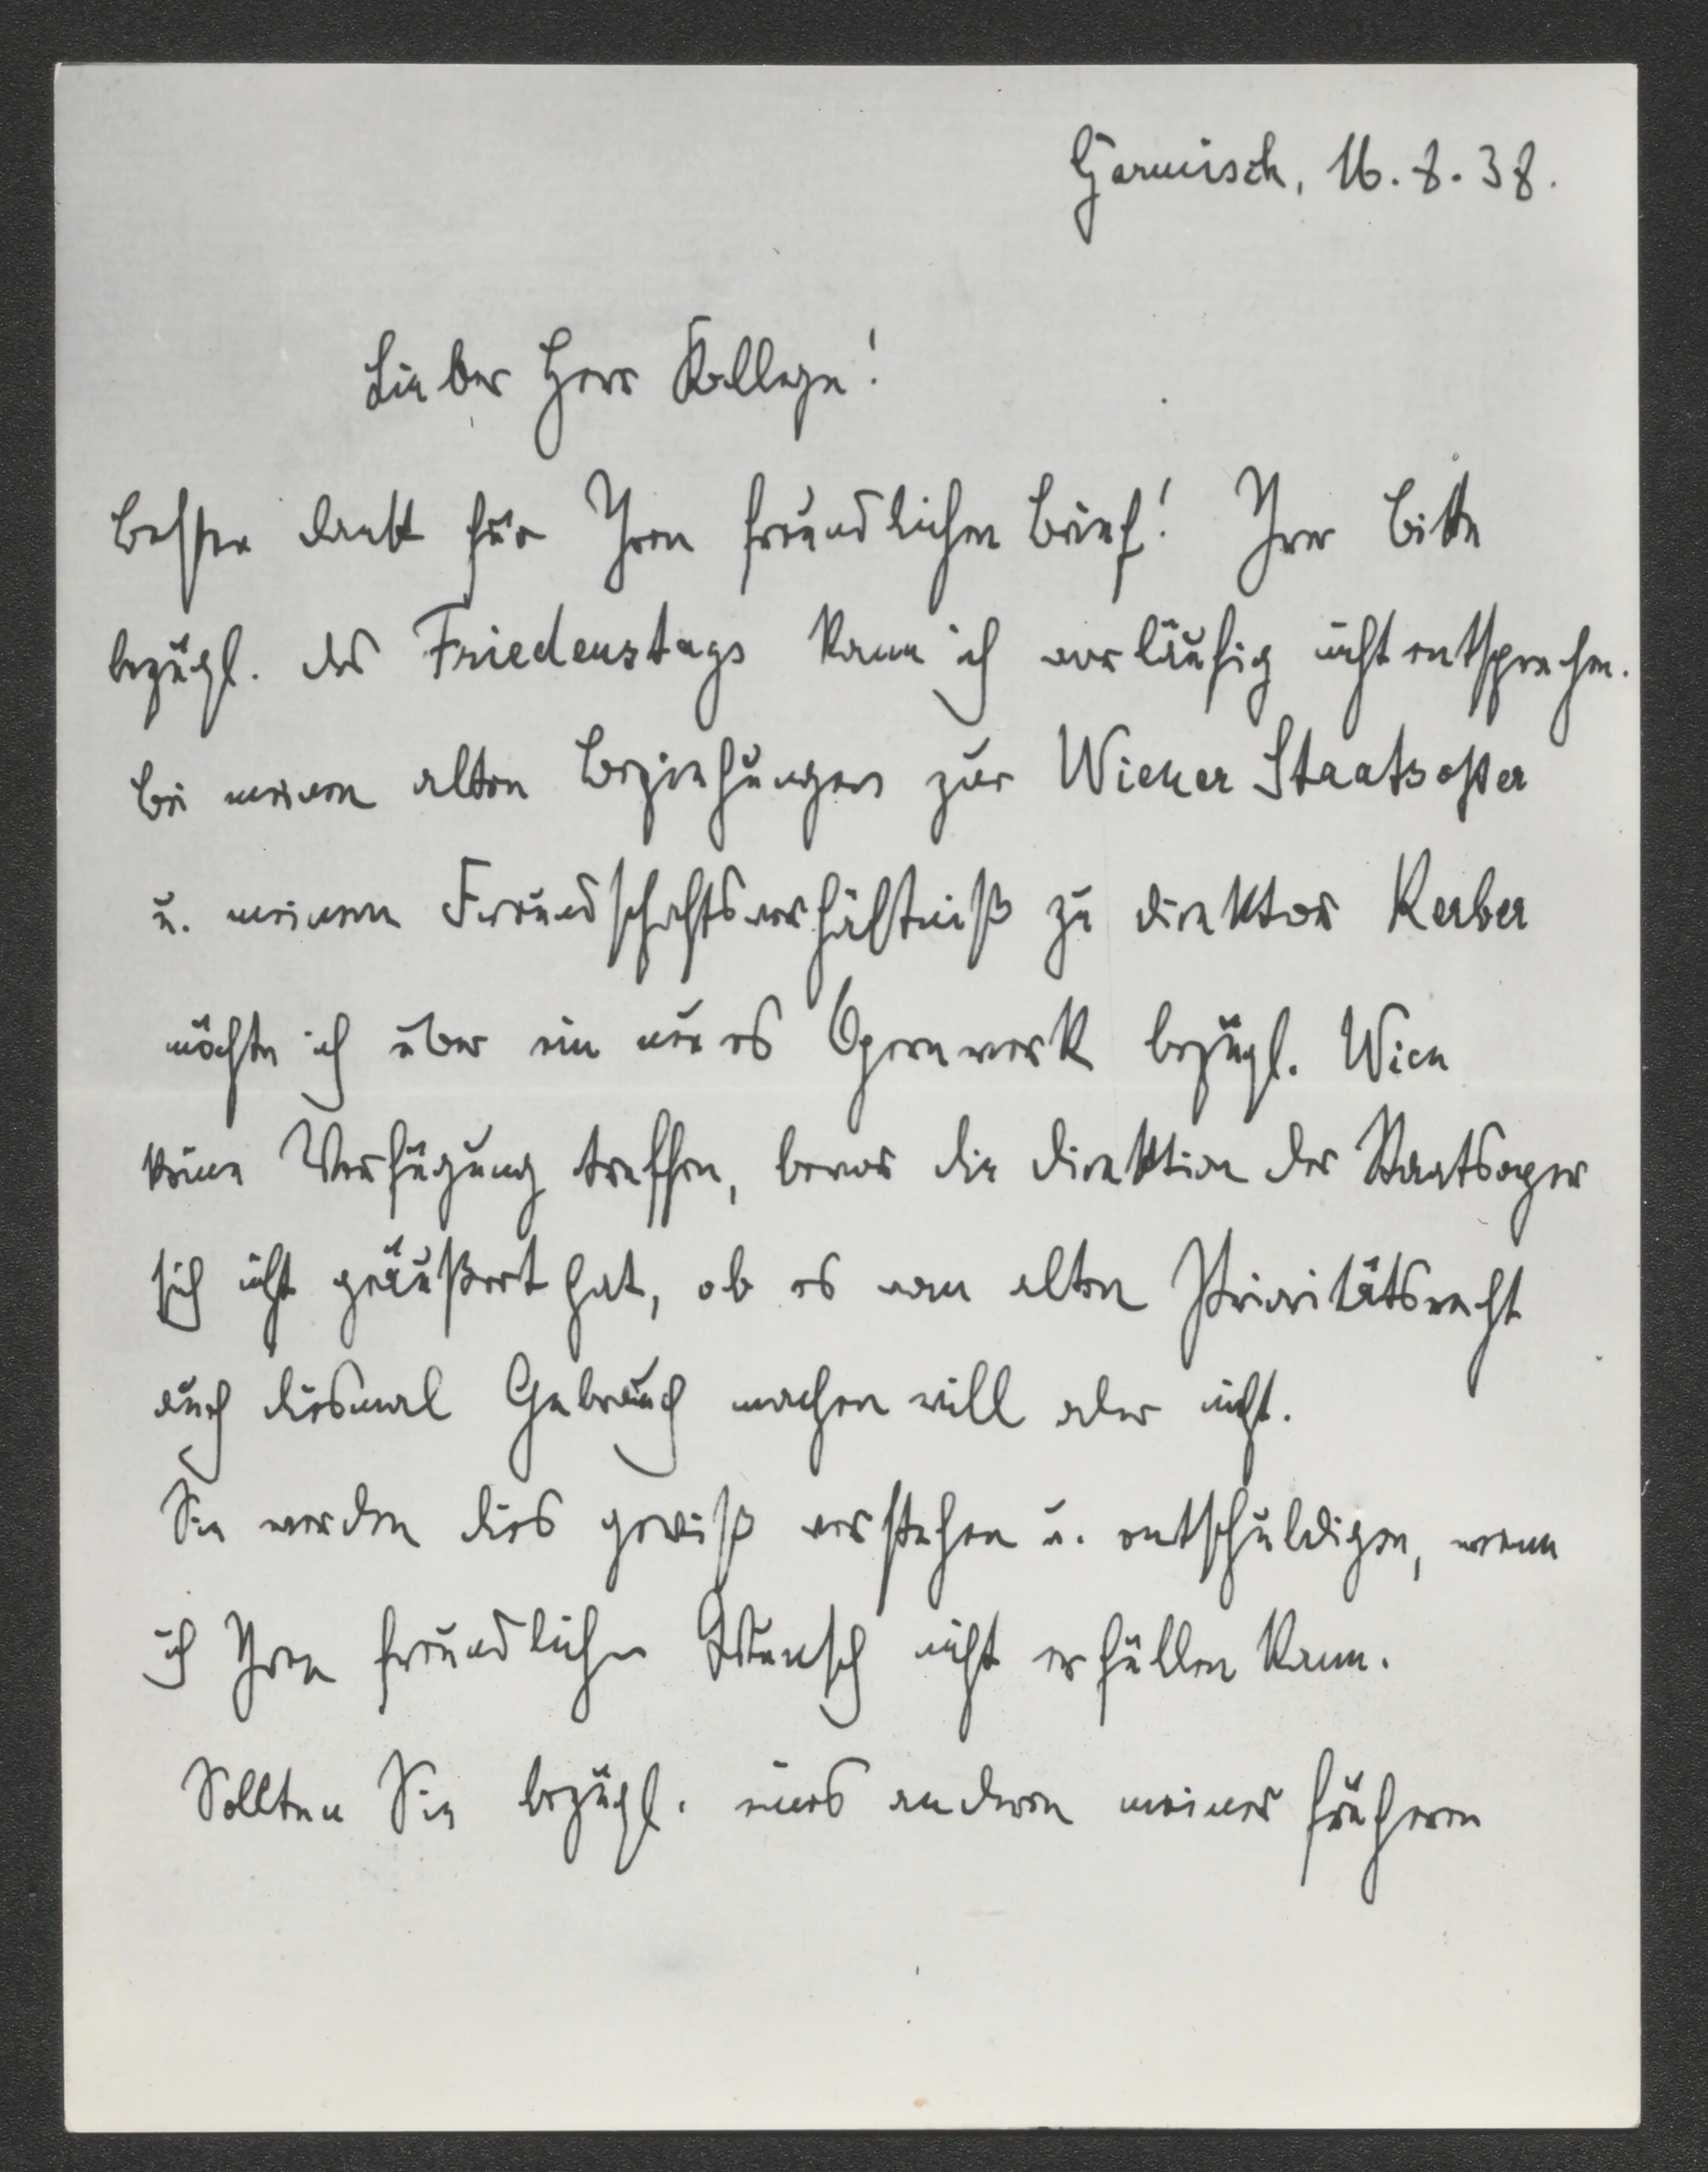 Garmisch, 16.8.38.
Lieber Herr Kollege!
Besten Dank für Ihren freundlichen Brief! Ihrer Bitte
bezügl. des Friedenstags kann ich vorläufig nicht entsprechen.
Bei meinen alten Beziehungen zur Wiener Staatsoper
u. meinem Freundschaftsverhältniß zu Direktor Kerber
möchte ich über ein neues Opernwerk bezügl. Wien
keine Verfügung treffen, bevor die Direktion der Staatsoper
sich nicht geäußert hat, ob es vom alten Prioritätsrecht
auch diesmal Gebrauch machen will oder nicht.
Sie werden dies gewiß verstehen u. entschuldigen, wenn
ich Ihren freundlichen Wunsch nicht erfüllen kann.
Sollten Sie bezügl. eines anderen meiner früheren